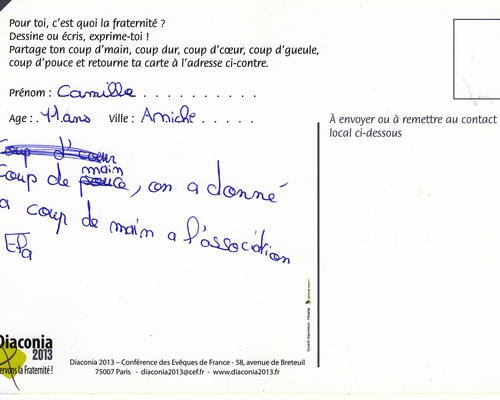 Pour toi, c'est quoi la fraternité ?
Dessine ou écris, exprime-toi !
Partage ton coup d'main, coup dur, coup d'cœur, coup d'gueule,
coup d'pouce et retourne ta carte à l'adresse ci-contre.
Prénom : Camille
Age : 11 ans Ville : Aniche
À envoyer ou à remettre au contact
local ci-dessous
Coup d'cœur
main
Coup de pouce, on a donné
a coup de main a l'association
Diaconia
2013
ervons la Fraternité !
Diaconia 2013 – Conférence des Evêques de France - 58, avenue de Breteuil
75007 Paris - diaconia2013@cef.fr - www.diaconia2013.fr